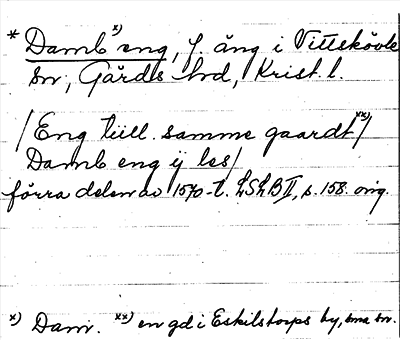 * Damb x) eng, f. äng i Vittskövle
sn, Gärds hd, Krist. l.
/Eng tiill samme gaardt xx)/
Damb eng ij les/
förra delen av 1570-t. LSLB II, s. 158. orig.
x) Dam. xx) en gd i Eskilstorps by, sma sn.